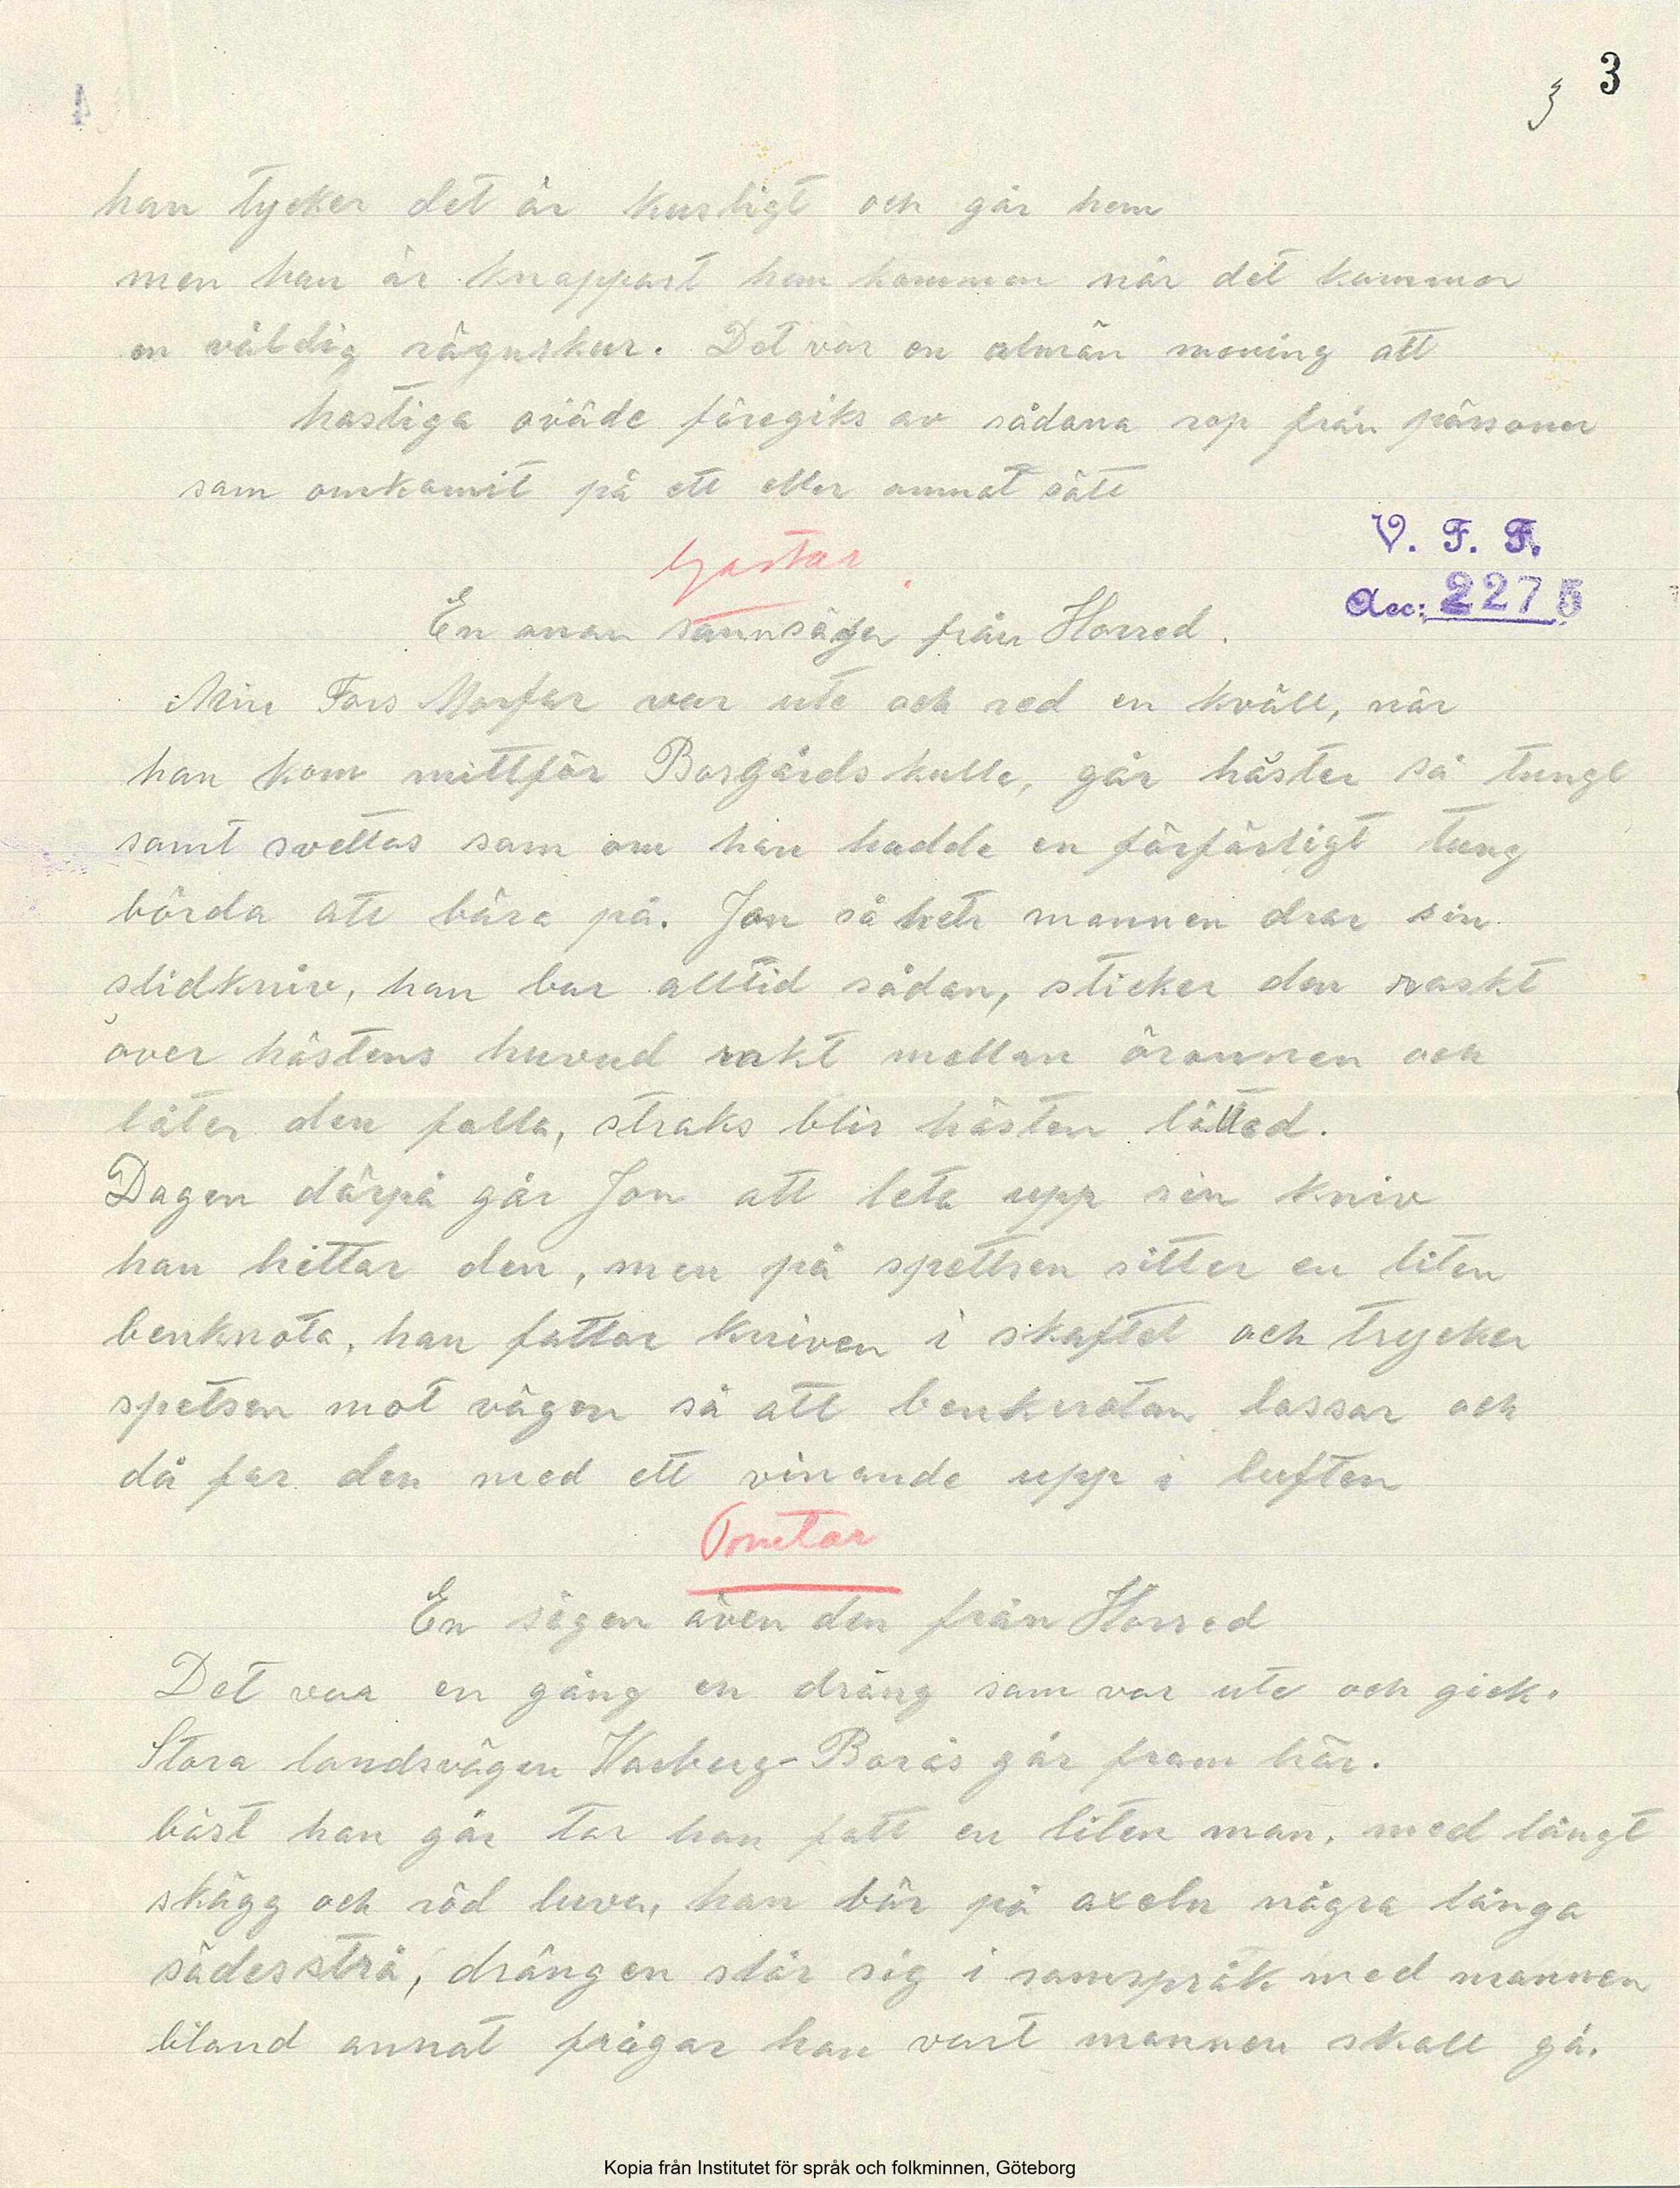 3
3
han tycker det är kusligt och går hem
men han är knappart hem kommen när det kommor
en väldig rägnskur. Det var en almän mening att
hastiga oväde föregiks av sådana rop från pärsoner
som omkomit på ett eller annat sätt
Gastar
V. F. F.
Acc: 2275
En anan sannsägen från Horred.
Min Fars Morfar var ute och red en kväll, när
han kom mittför Borgårds kulle, går häster så tungt
samt svettas som om han hadde en förfärligt tung
börda att bära på. Jon så hetr mannen drar sin
slidkniv, han bar alltid sådan, sticker den raskt
över hästens huvud rakt mellan örannen och
låter den falla, straks blir hästen lätted.
Dagen därpå går Jon att leta upp sin kniv
han hittar den, men på spettsen sitter en liten
benknota, han fattar kniven i skaftet och trycker
spetsen mot vägen så att benknotan lossar och
då far den med ett vinande upp i luften
Tomtar
En sägen även den från Horred
Det var en gång en dräng som var ute och gick.
Stora landsvägen Varberg-Borås går fram här.
bäst han går tar han fatt en liten man, med långt
skägg och röd luva, han bär på axeln några långa
sädesstrå, drängen slår sig i samspråk med mannen
bland annat frågar han vart mannen skall gå.
Kopia från Institutet för språk och folkminnen, Göteborg